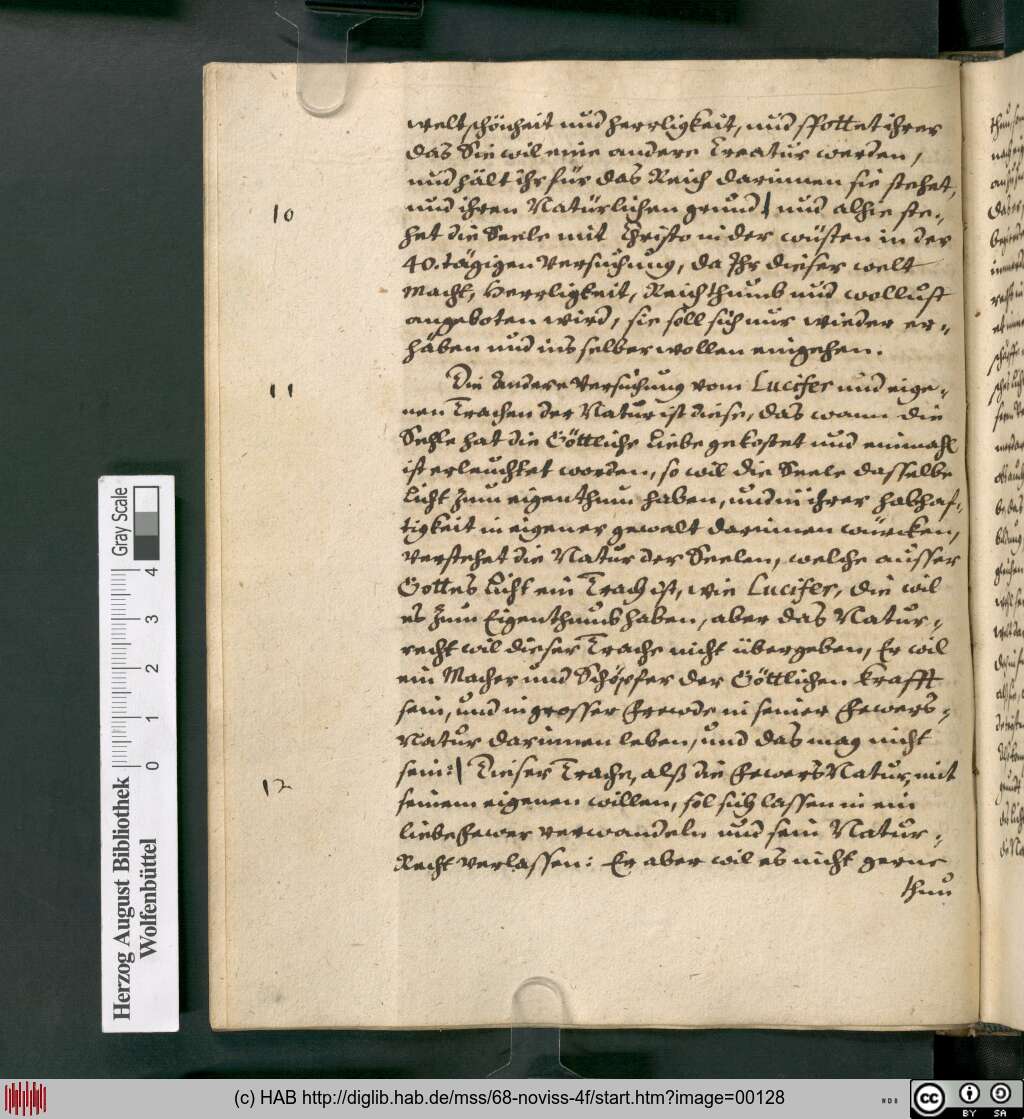 welt schönheit und herrligkeit, und spottet ihrer
das Sie wil eine andere Creatur werden,
und hält ihr für das Reich darinnen sie stehet,
10 und ihren Natürlichen grund/ und alhie ste-
het die Seele mit Christo in der wüsten in der
40. tägigen versuchung, da Ihr dieser welt
Macht, Herrligkeit, Reichthumb und wollust
angeboten wird, sie soll sich nur wieder er-
häben und ins selber wollen eingehen.
11 Die Andere versuchung vom Lucifer und eige-
nen Trachen der Natur ist diese, das wann die
Sehle hat die Göttliche Liebe gekostet und einmahl
ist erleuchtet worden, so wil die Seele dasselbe
Licht zum eigenthum haben, und in ihrer habhaf-
tigkeit in eigener gewalt darinnen würcken,
verstehet die Natur der Seelen, welche ausser
Gottes Licht ein Trach ist, wie Lucifer, die wil
es zum Eigenthumb haben, aber das Natur-
recht wil dieser Trache nicht übergeben, Er wil
ein Macher und Schöpfer der Göttlichen krafft
sein, und in grosser frewde in seiner fewers-
Natur darinnen leben, und das mag nicht
12 sein:/ Dieser Trache, alß die fewers Natur mit
seinem eigenen willen, sol sich lassen in ein
liebe fewer verwandeln und sein Natur-
Recht verlassen: Er aber wil es nicht gerne
thun
Gray Scale
0 1 2 3 4
Herzog August Bibliothek
Wolfenbüttel
(c) HAB http://diglib.hab.de/mss/68-noviss-4f/start.htm?image=00128
WDB
cc BY SA